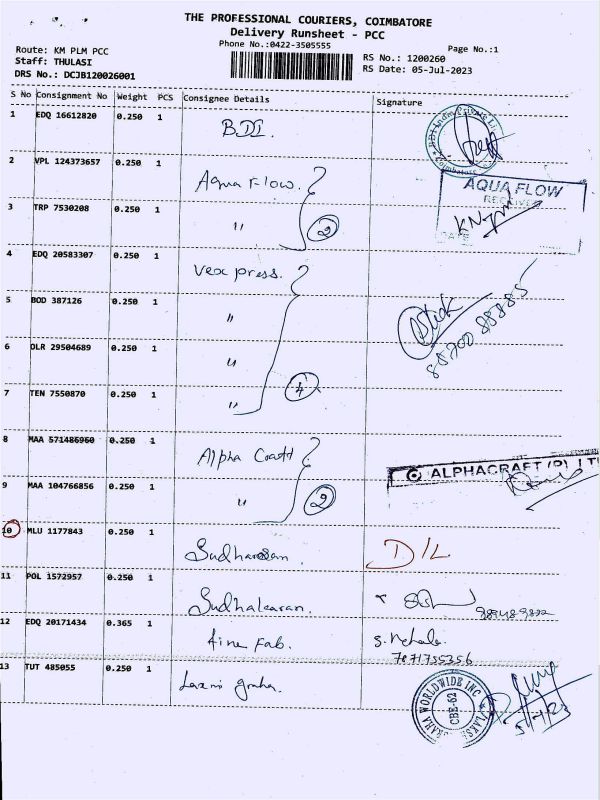 THE PROFESSIONAL COURIERS, COIMBATORE
Delivery Runsheet - PCC
Phone No.:0422-3505555
Page No.:1
Route: KM PLM PCC
Staff: THULASI
DRS No.: DCJB120026001
RS No.: 1200260
RS Date: 05-Jul-2023
S No Consignment No Weight PCS Consignee Details Signature
1 EDQ 16612820 0.250 1 BDI.
2 VPL 124373657 0.250 1 Aqua Flow.
AQUA FLOW
RECEIVED
3 TRP 7530208 0.250 1 " 2
DATE
4 EDQ 20583307 0.250 1 Vexpress.
5 BOD 387126 0.250 1 "
6 OLR 29504689 0.250 1 "
7 TEN 7550870 0.250 1 " 4
8 MAA 571486960 0.250 1 Alpha Craft
ALPHACRAFT (P) LT
9 MAA 104766856 0.250 1 " 2
10 MLU 1177843 0.250 1 Sudharsan. D/L
11 POL 1572957 0.250 1 Sudhakaran.
12 EDQ 20171434 0.365 1 fine Fab. S. Nehala
7871755356
13 TUT 485055 0.250 1 Laxmi graha.
GRAHA WORLDWIDE INC
CBE-62
5/7/23